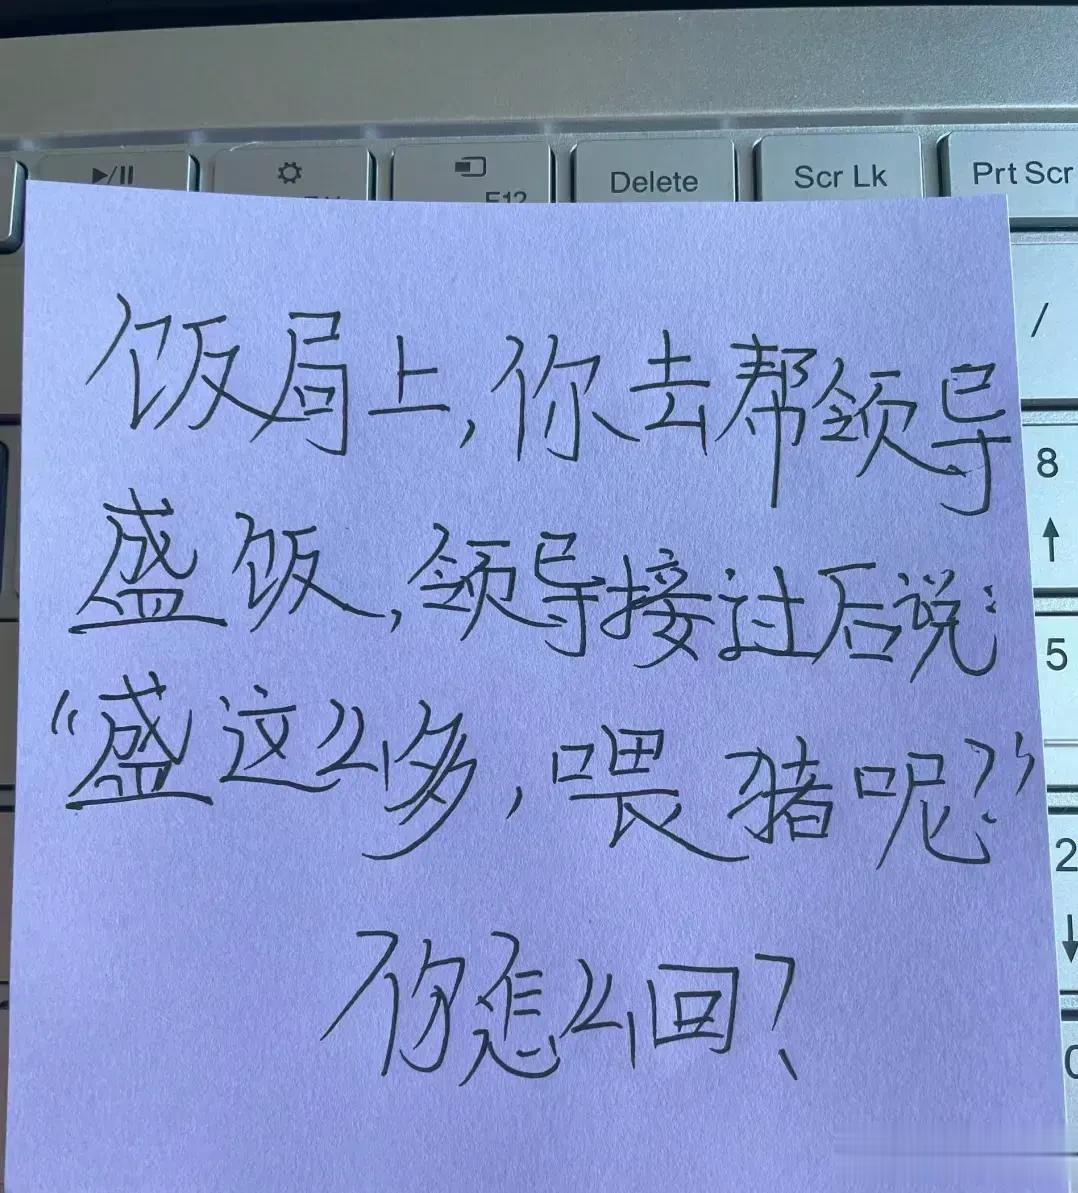 ▶/II
F12
Delete
Scr Lk
Prt Scr
/
8
↑
5
2
↓
0
饭局上,你去帮领导
盛饭,领导接过后说:
“盛这么多,喂猪呢?”
你怎么回?